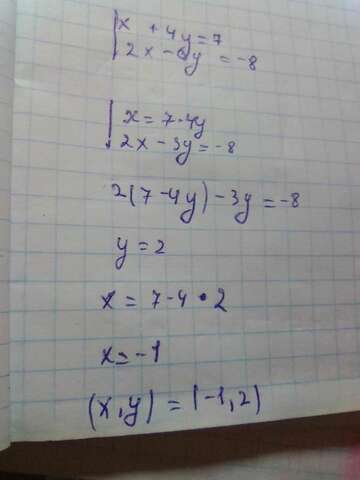 x + 4y = 7
2x - 6y = -8
x = 7-4y
2x - 3y = -8
2(7-4y) - 3y = -8
y = 2
x = 7-4 • 2
x = -1
(x,y) = (-1,2)